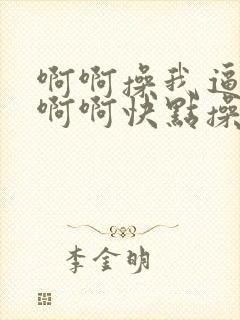 啊啊操我逼
啊啊快點操
李金明